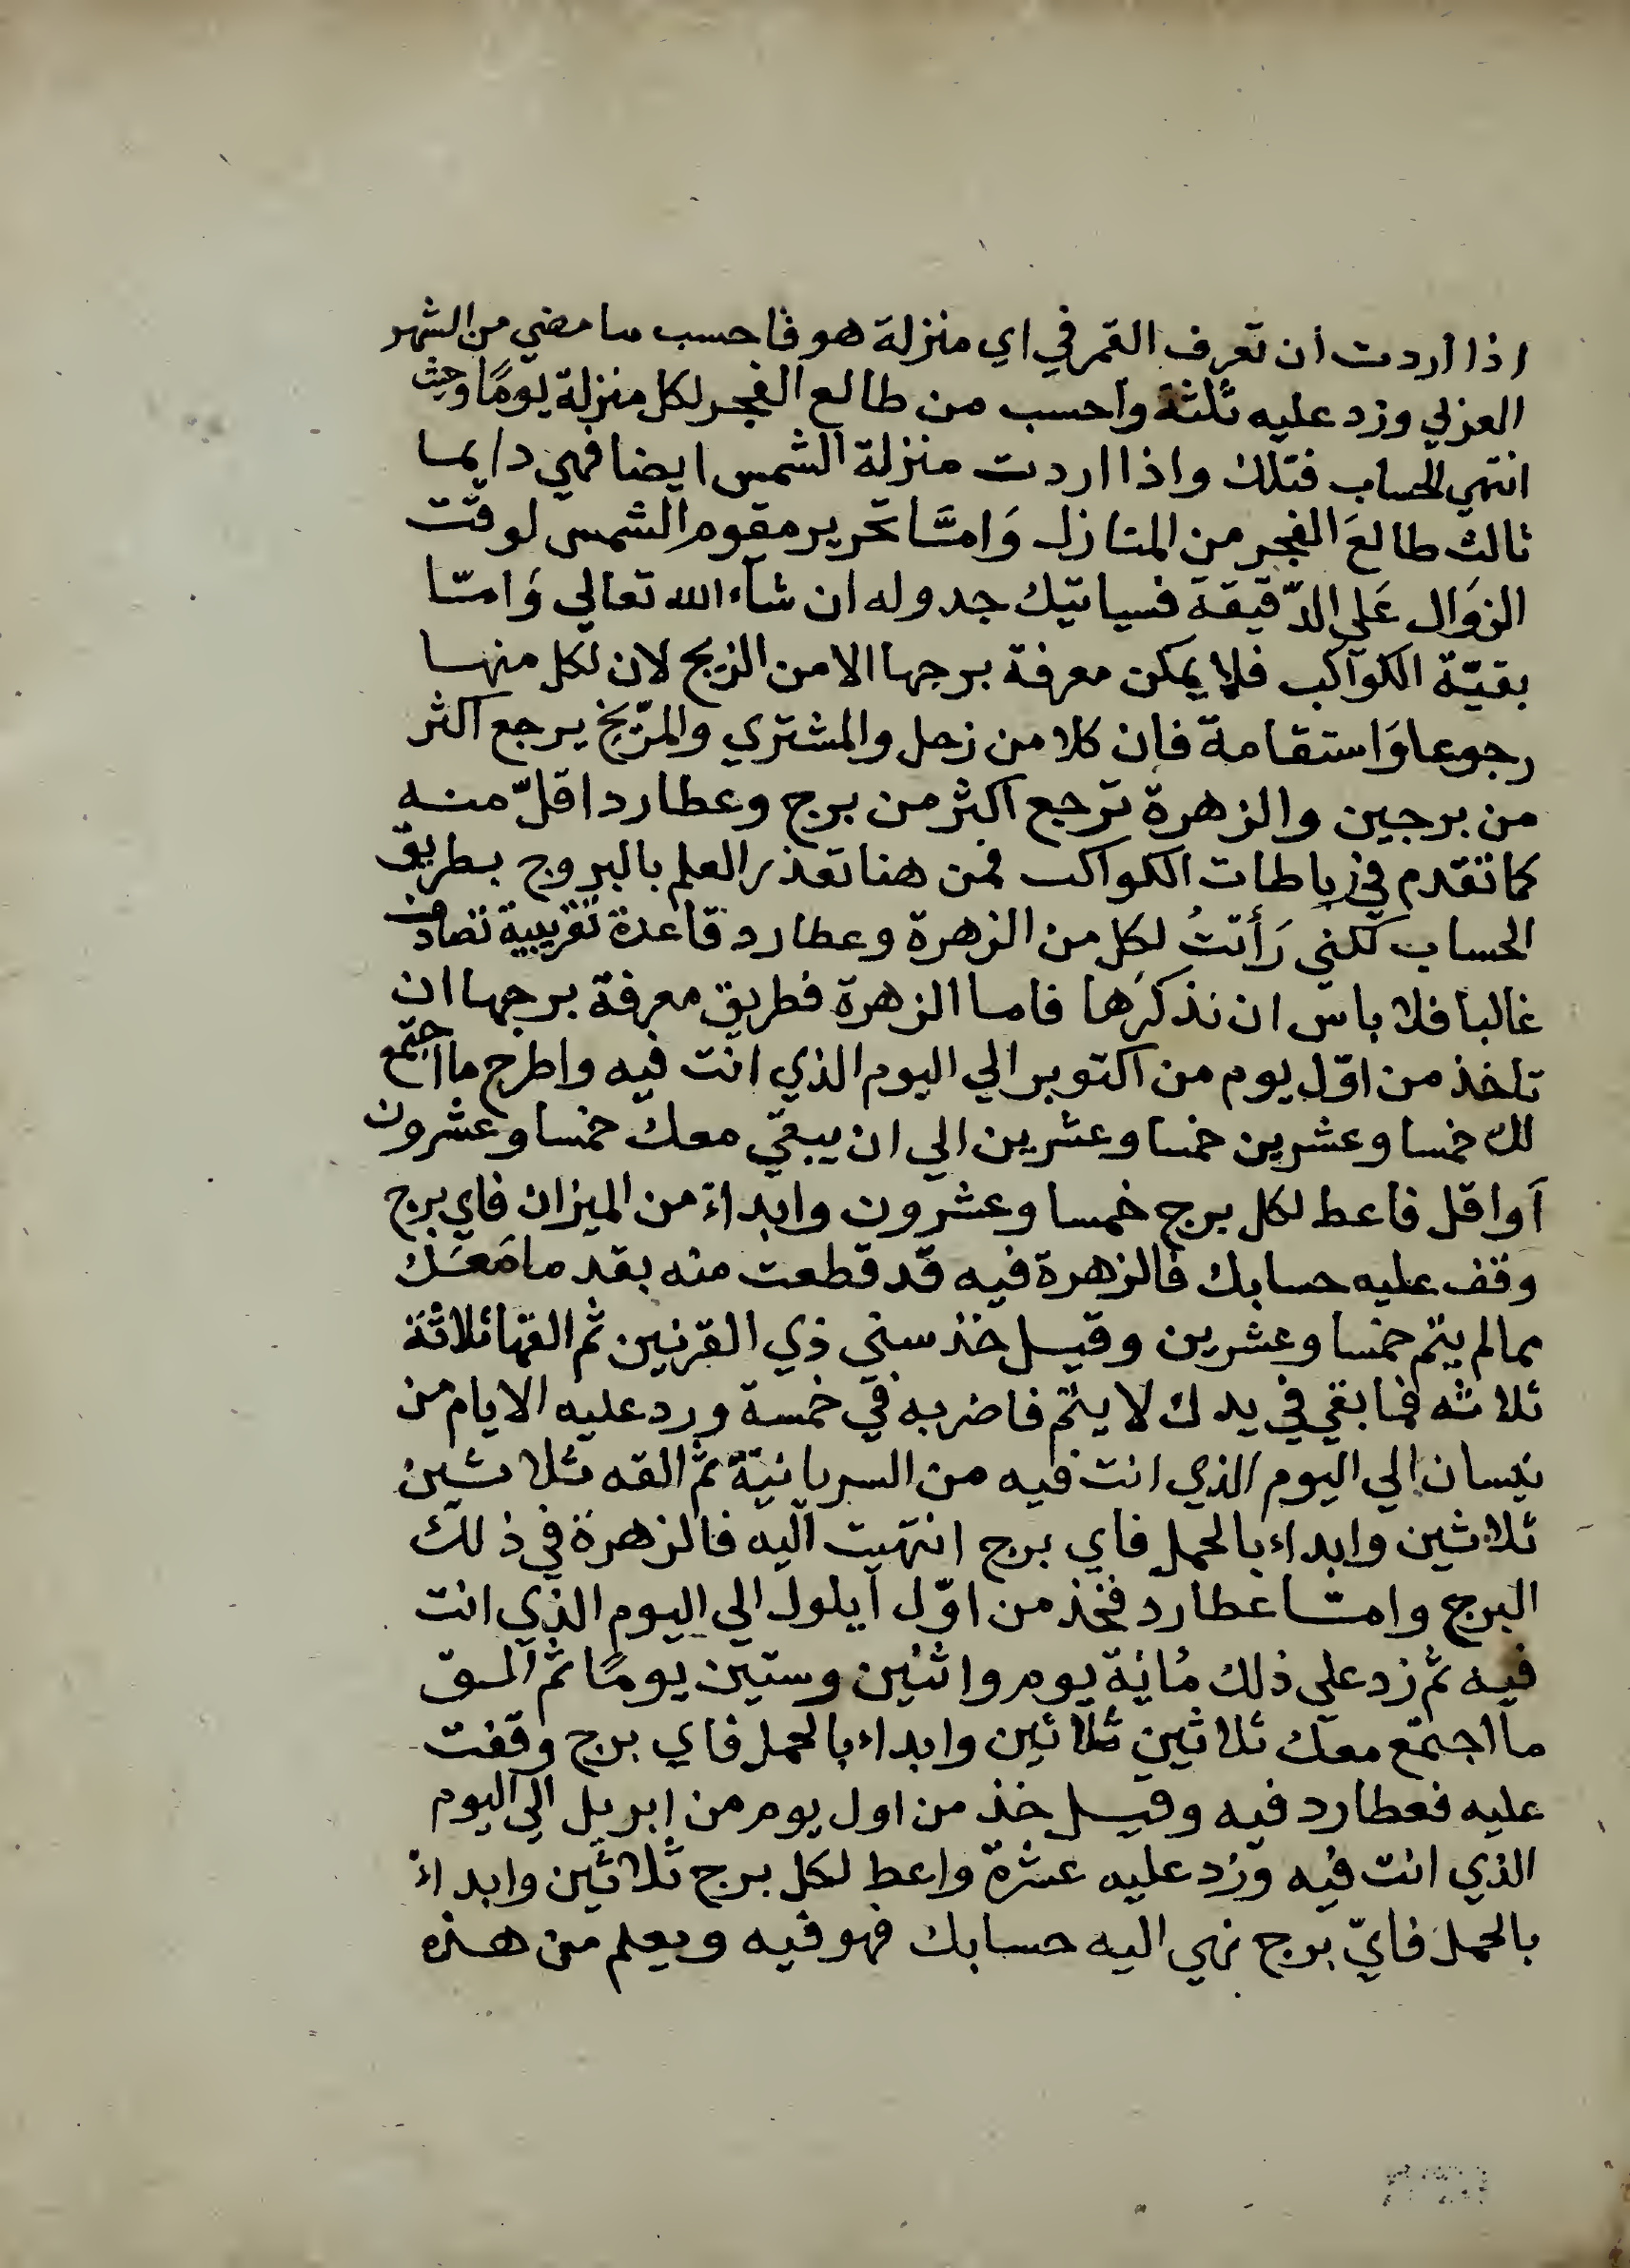 اذا اردت ان تعرف القمر في اي منزلة هو فاحسب ما مضي من الشهر
العربي وزد عليه ثلثة واحسب من طالع الفجر لكل منزلة يومًا وحيث
انتهي الحساب فتلك واذا اردت منزلة الشمس ايضا فهي دايما
ثالث طالعَ الفجر من المنازل وَامَّا تحرير مقوم الشمس لوقت
الزوَال عَلي الدّقيقة فسياتيك جدوله ان شاء الله تعالي وَامّا
بقيّة الكواكب فلا يمكن معرفة برجها الا من الزيج لان لكل منها
رجوعا وَاستقامة فان كلا من زحل والمشتري والمرّيخ يرجع اكثر
من برجين والزهرة ترجع اكثر من برج وعطارد اقلّ منه
كما تقدم في رباطات الكواكب فمن هنا تعذر العلم بالبروج بطريق
الحساب لكني رَأيتُ لكل من الزهرة وعطارد قاعدة تقريبية تصادف
غالبا فلا باس ان نذكرَها فاما الزهرة فطريق معرفة برجها ان
تاخذ من اوّل يوم من اكتوبر الي اليوم الذي انت فيه واطرح ما اجتمع
لك خمسا وعشرين خمسا وعشرين الي ان يبقي معك خمسا وعشرون
اَو اقل فاعط لكل برج خمسا وعشرون وابداء من الميزان فاي برج
وقف عليه حسابك فالزهرة فيه قد قطعت منه بقد ما مَعَك
مما لم يتم خمسا وعشرين وقيل خذ سني ذي القرنين ثم القها ثلاثة
ثلاثه فما بقي في يدك لا يتم فاضربه في خمسة ورد عليه الايام من
نيسان الي اليوم الذي انت فيه من السريانيّة ثم القه ثلاثين
ثلاثين وابداء بالحمل فاي برج انتهيت اليه فالزهرة في ذلك
البرج وامّا عطارد فخذ من اوّل ايلول الي اليوم الذي انت
فيه ثم زد علي ذلك مُاية يوم واثنين وستين يومًا ثم الق
ما اجتمع معك ثلاثين ثلاثين وابداء بالحمل فاي برج وقفت
عليه فعطارد فيه وقيل خذ من اول يوم من إبريل الي اليوم
الذي انت فيه وزد عليه عشرة واعط لكل برج ثلاثين وابداء
بالحمل فايّ برج نهي اليه حسابك فهو فيه ويعلم من هذه